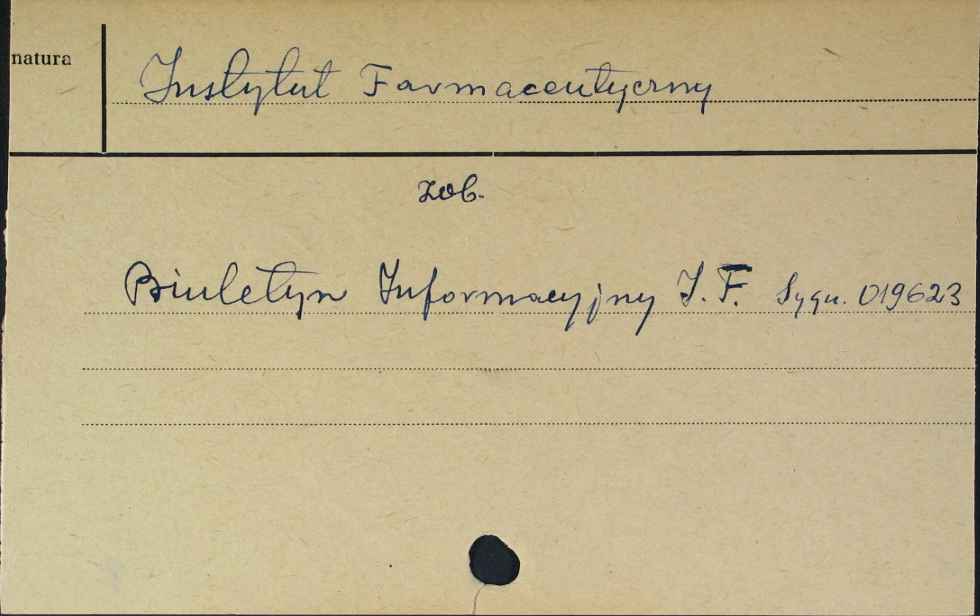 natura
Instytut Farmaceutyczny
zob.
Biuletyn Informacyjny I.F. Sygn. 019623